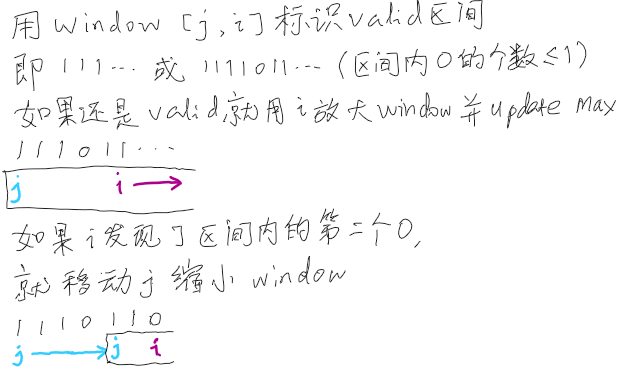 用 window [j, i] 标识 valid 区间
即 111... 或 1111011... (区间内0的个数≤1)
如果还是 valid, 就用 i 放大 window 并 update max
111011...
j i
如果 i 发现了区间内的第二个0,
就移动 j 缩小 window
1110110
j j i